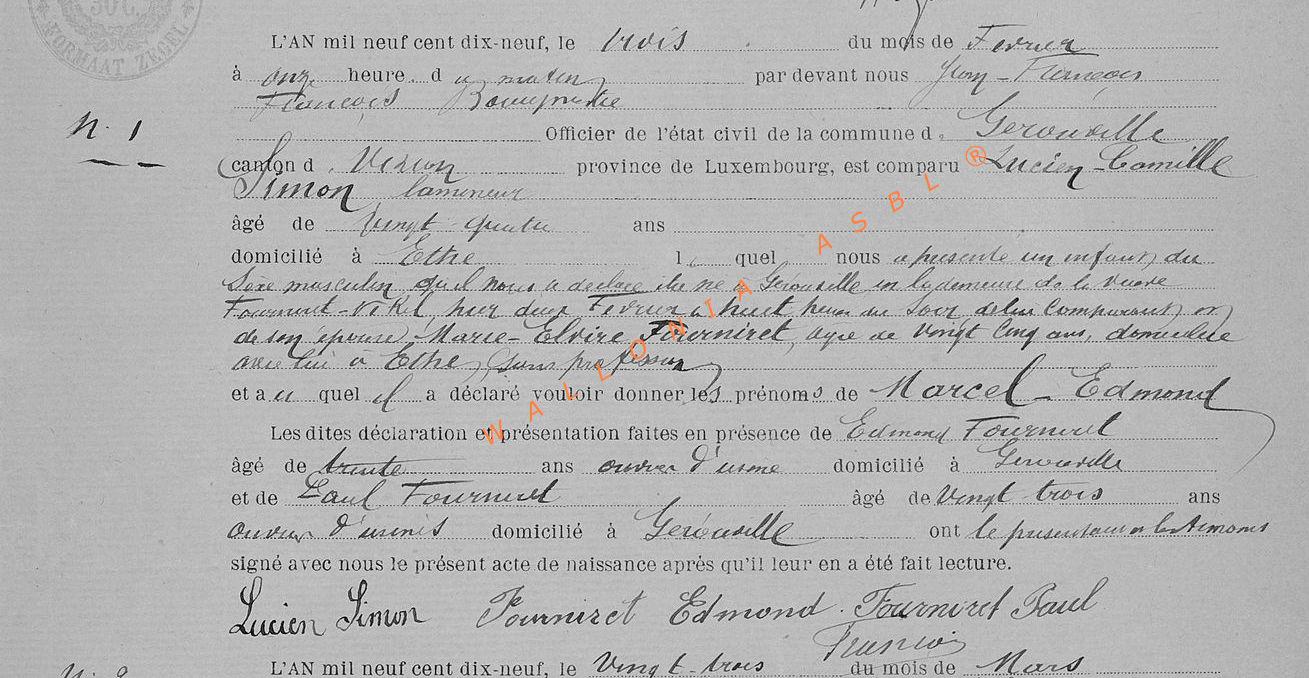 50 C.
FORMAAT ZEGEL
L'AN mil neuf cent dix-neuf, le trois du mois de Fevrier
à onze heure. d u matin par devant nous Jean-François
François
N. 1
Officier de l'état civil de la commune d. Gerouville
canton d. Virton province de Luxembourg, est comparu Lucien-Camille
Simon, lamineur
âgé de vingt quatre ans
domicilié à Ethe l e quel nous a présenté un enfant du
sexe masculin qu'il nous a déclaré être né à Gérouville en la demeure de la veuve
Fourniret-Nikel, hier deux Fevrier à huit heures du soir de lui comparant, et
de son épouse, Marie-Elvire Fourniret, agée de vingt cinq ans, domiciliée
avec lui à Ethe, sans profession
et a u quel il a déclaré vouloir donner les prénoms de Marcel-Edmond
Les dites déclaration et présentation faites en présence de Edmond Fourniret
âgé de trente ans ouvrier d'usine domicilié à Gerouville
et de Paul Fourniret âgé de vingt-trois ans
ouvrier d'usines domicilié à Gérouville ont le présentant et les témoins
signé avec nous le présent acte de naissance après qu'il leur en a été fait lecture.
Lucien Simon Fourniret Edmond. Fourniret Paul
François
L'AN mil neuf cent dix-neuf, le vingt-trois du mois de Mars
WALLONIA ASBL ®